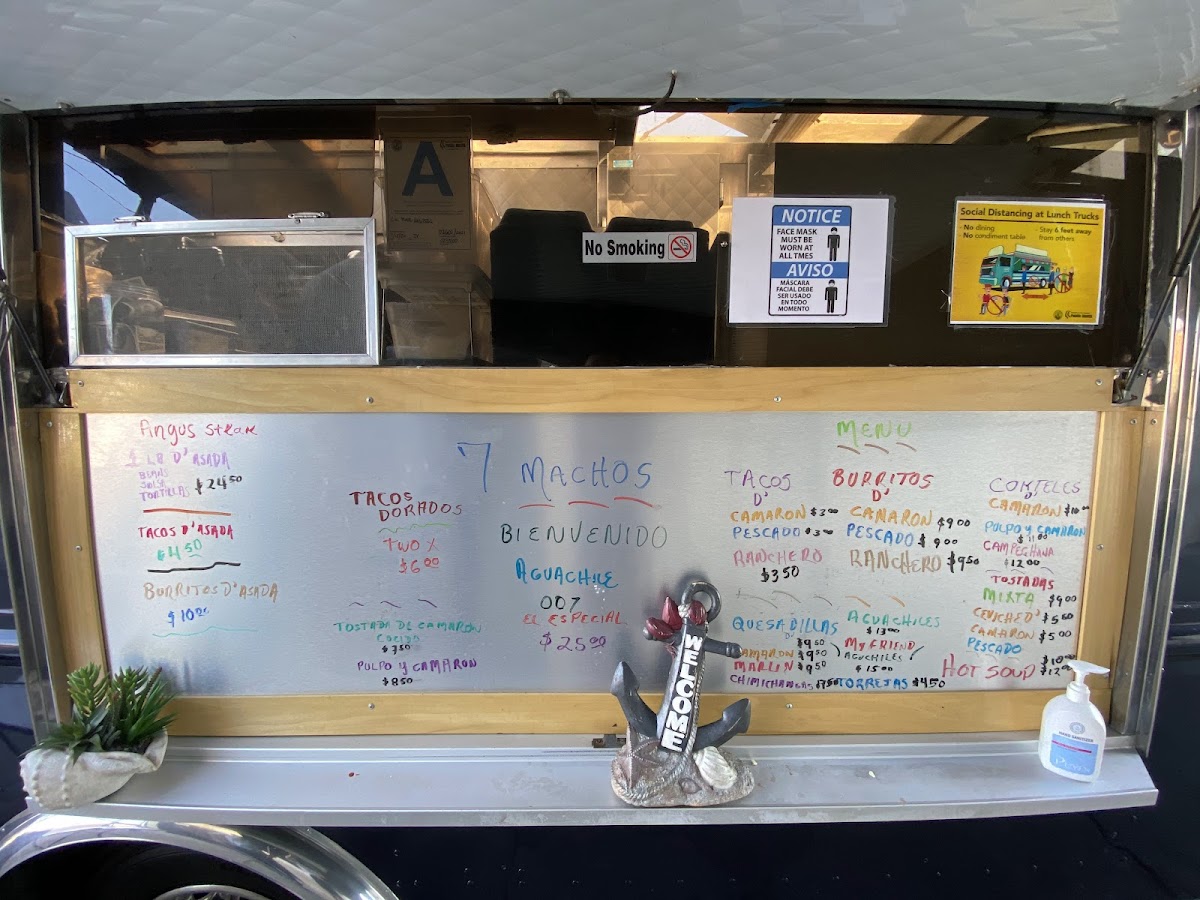 A
No Smoking
NOTICE
FACE MASK
MUST BE
WORN AT
ALL TMES
AVISO
MÁSCARA
FACIAL DEBE
SER USADO
EN TODO
MOMENTO
Social Distancing at Lunch Trucks
- No dining
- No condiment table
- Stay 6 feet away
from others
Angus Steak
1 LB D'ASADA
BEANS
SALSA
TORTILLAS $24.50
TACOS D'ASADA
$4.50
BURRITOS D'ASADA
$10.00
TACOS
DORADOS
TWO X
$6.00
TOSTADA DE CAMARON
COCIDO
$7.50
PULPO Y CAMARON
$8.50
7 MACHOS
BIENVENIDO
AGUACHILE
007
EL ESPECIAL
$25.00
MENU
TACOS
D'
CAMARON $3.00
PESCADO $3.00
RANCHERO
$3.50
QUESADILLAS
D' $9.50
CAMARON $9.50
MARLIN $9.50
CHIMICHANGAS
BURRITOS
D'
CAMARON $9.00
PESCADO $9.00
RANCHERO $9.50
AGUACHILES
$13.00
My FRIEND
AGUCHILES
$15.00
TORREJAS $4.50
COKTELES
D'
CAMARON $10.00
PULPO Y CAMARON
$11.00
CAMPECHANA
$12.00
TOSTADAS
MIXTA $9.00
CEVICHE D' $5.50
CAMARON $5.00
PESCADO
HOT SOUP $10.00
$12.00
WELCOME
HAND SANITIZER